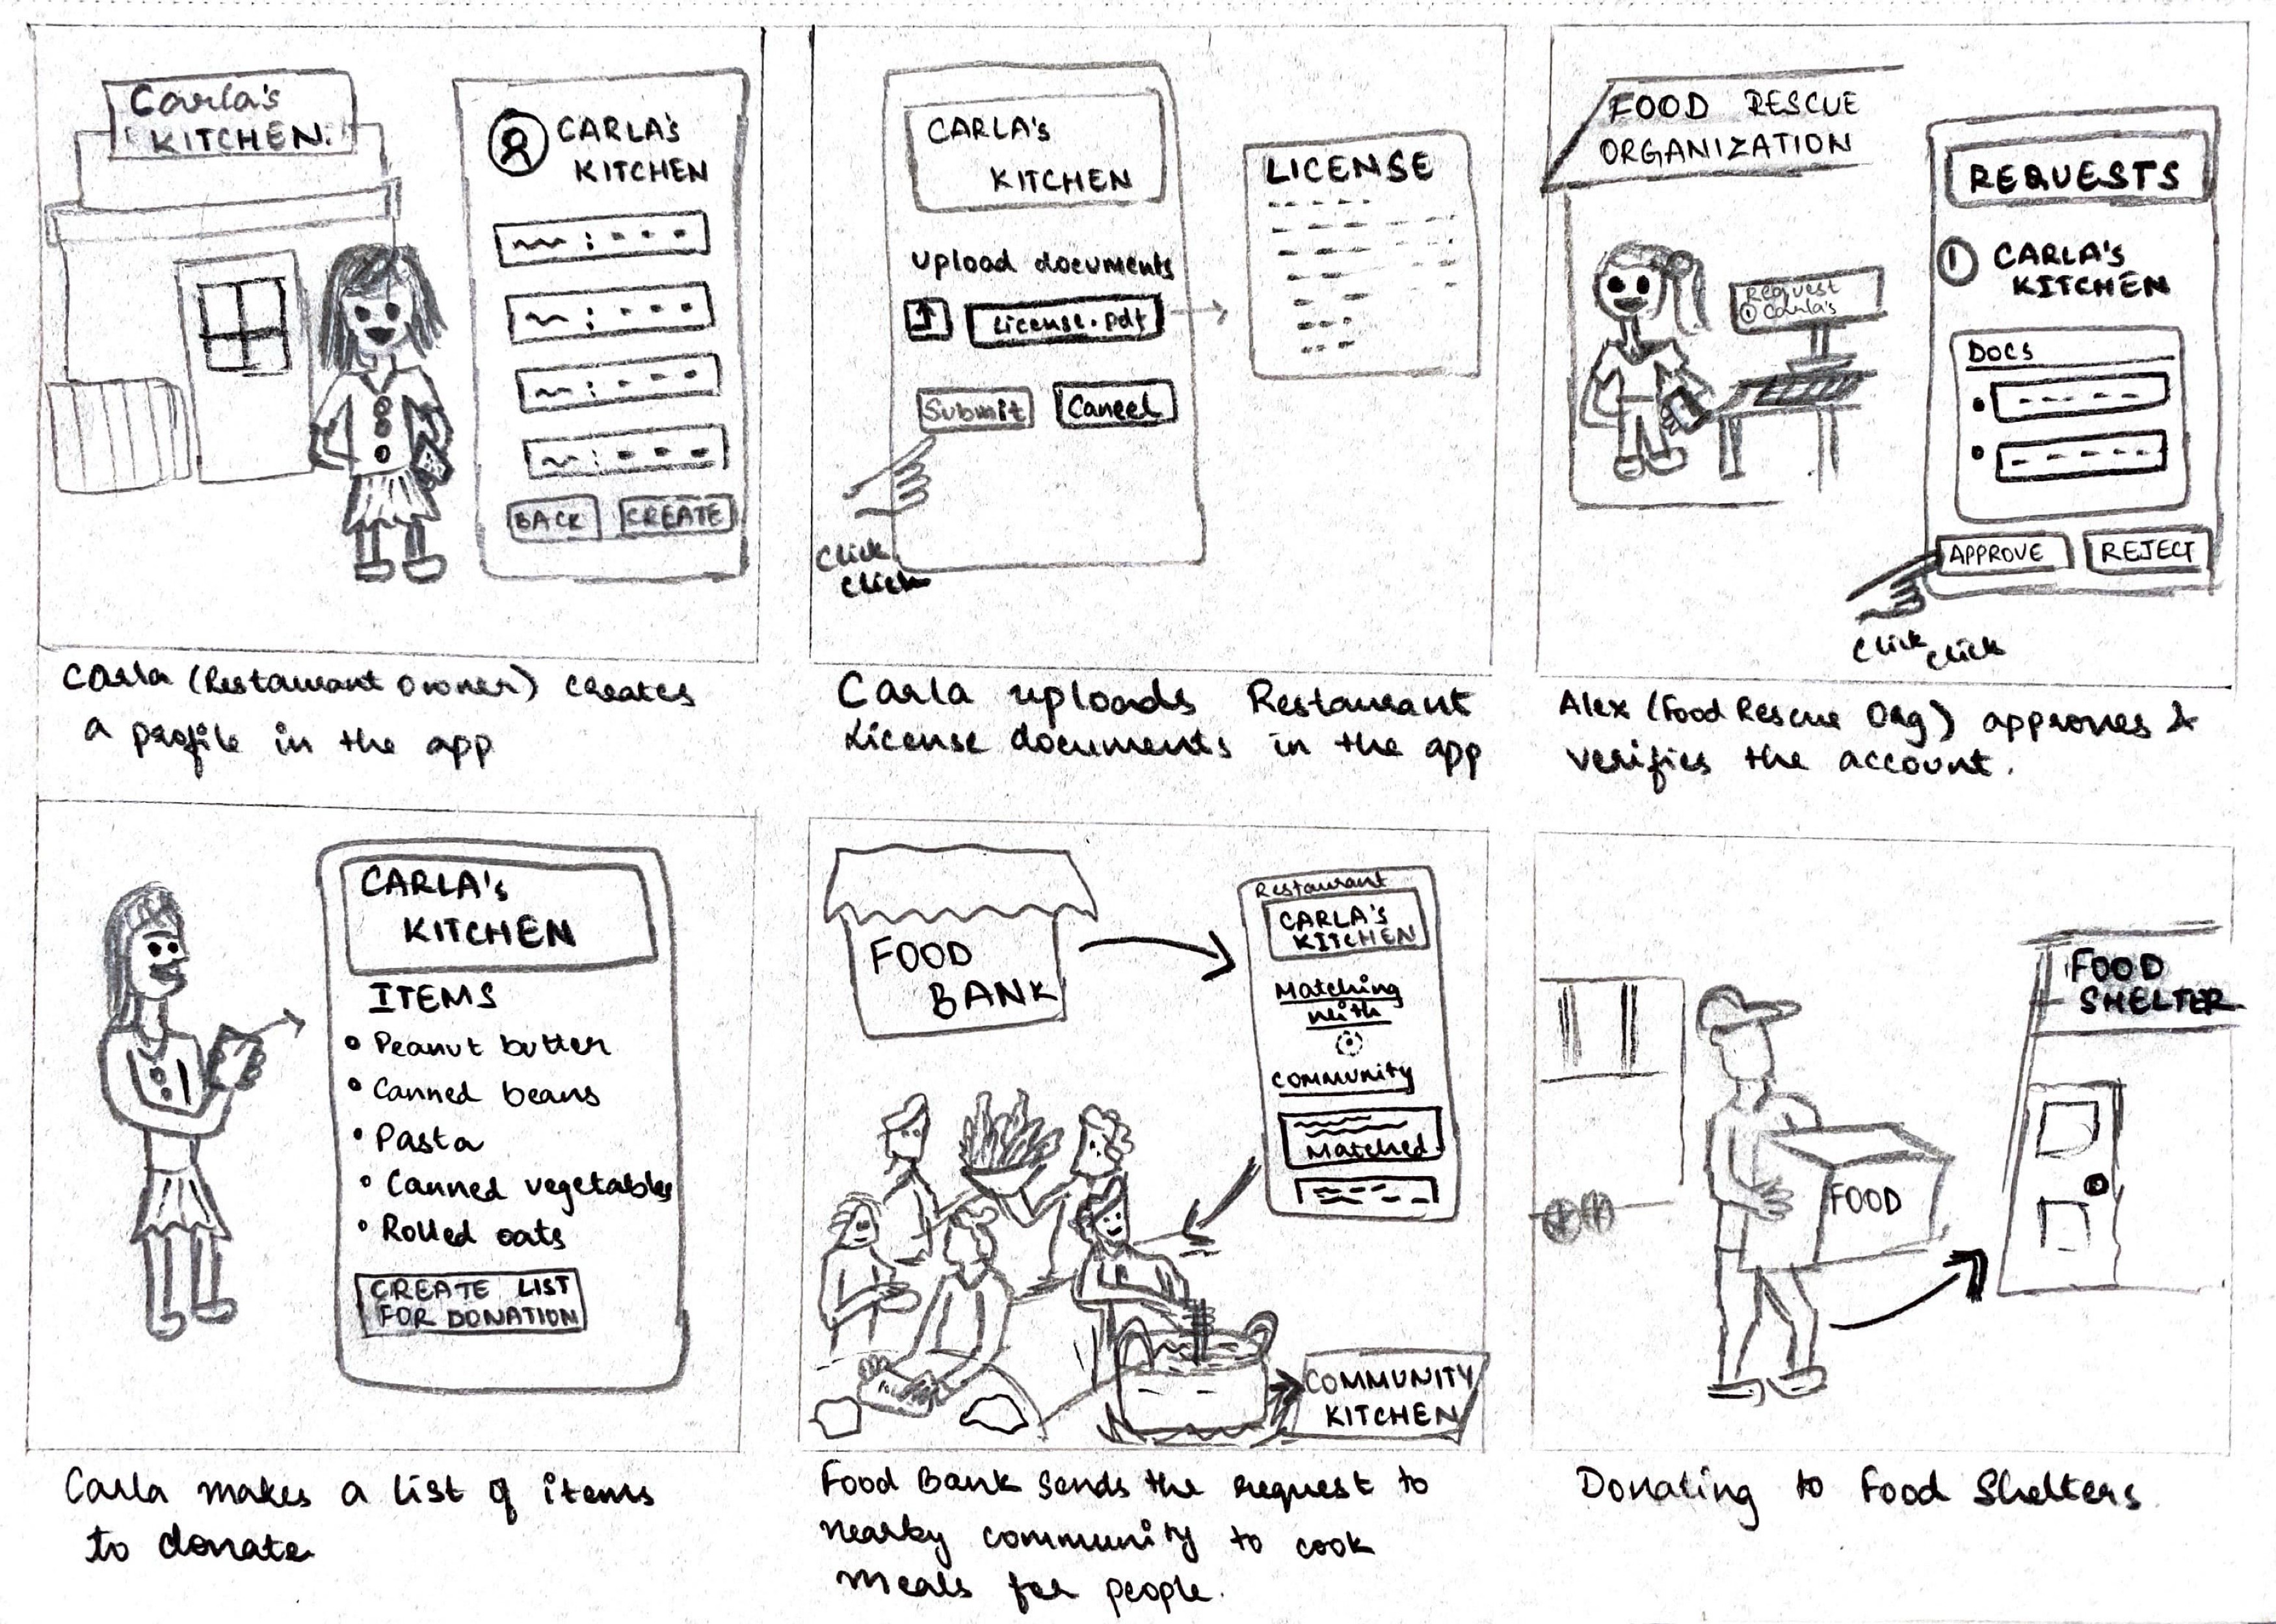 Carla's
KITCHEN.
CARLA's
KITCHEN
BACK
CREATE
Carla (Restaurant Owner) creates
a profile in the app
CARLA's
KITCHEN
Upload documents
License.pdf
Submit
Cancel
click
click
LICENSE
Carla uploads Restaurant
License documents in the app
FOOD RESCUE
ORGANIZATION
Request
① Carla's
REQUESTS
① CARLA's
KITCHEN
DOCS
APPROVE
REJECT
click
click
Alex (Food Rescue Org) approves &
verifies the account.
CARLA's
KITCHEN
ITEMS
• Peanut butter
• Canned beans
• Pasta
• Canned vegetables
• Rolled oats
CREATE LIST
FOR DONATION
Carla makes a list of items
to donate
FOOD
BANK
Restaurant
CARLA'S
KITCHEN
Matching
with
COMMUNITY
Matched
COMMUNITY
KITCHEN
Food Bank sends the request to
nearby community to cook
meals for people.
FOOD
SHELTER
FOOD
Donating to Food Shelters